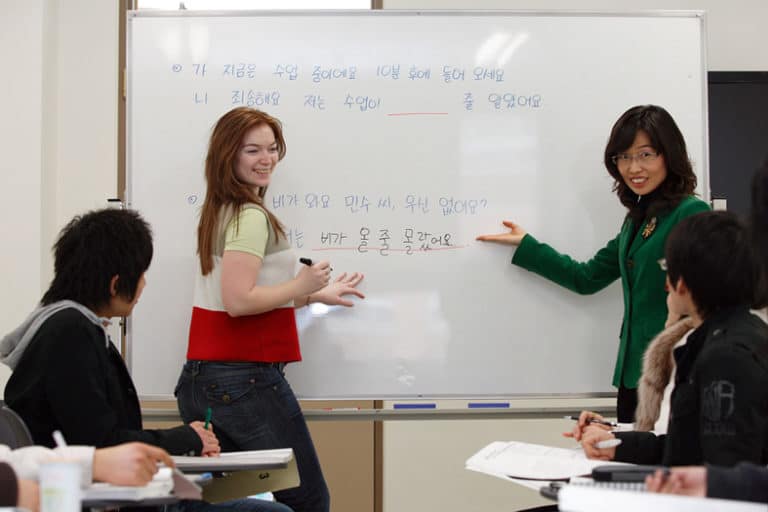 가 지금은 수업 중이에요 10분 후에 들어 오세요
나 죄송해요 저는 수업이 ______ 줄 알았어요
비가 와요 민수 씨, 우산 없어요?
저는 비가 올 줄 몰랐어요.